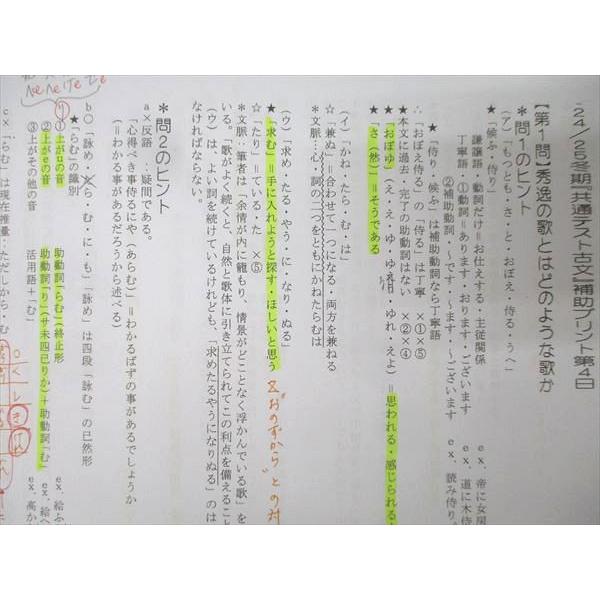 '24/'25冬期『共通テスト古文』補助プリント第4日
【第1問】秀逸の歌とはどのような歌か
＊問1のヒント
(ア)「もっとも・さ・と・おぼえ・侍る・うへ」
★「候ふ・侍り」
謙譲語 動詞だけ＝お仕えする・主従関係 ex．帝に女房
丁寧語 ①動詞＝あります・おります・ございます ex．道に木侍
②補助動詞・〜です・〜ます・〜ございます ex．読み侍り。
★「侍り 候ふ」は補助動詞なら丁寧語
∴「おぼえ侍る」の「侍る」は丁寧 ×①×⑤
★本文に過去・完了の助動詞はない ×②×④
★「おぼゆ」(え・え・ゆ・ゆる・ゆれ・えよ)＝思われる・感じられる・
★「さ(然)」＝そうである
(イ)「かね・たら・む・は」
☆「兼ぬ」＝合わせて一つになる・両方を兼ねる
＊文脈：心・詞の二つをともにかねたらむは
(ウ)「求め・たる・やう・に・なり・ぬる」
★「求む」＝手に入れようと探す・ほしいと思う
☆「たり」＝ている・た ×⑤
＊文脈：筆者は「余情が内に籠もり、情景がどことなく浮かんでいる歌」を
いる。「歌がよく続くと、自然と歌体に引き立てられてこの利点を備えること
(ウ)は、よい詞を続けているけれども、「求めたるやうになりぬる」のは
なければならない。
＊問2のヒント
a×反語：疑問である。
「心得べき事侍るにや(あらむ)」＝わかるはずの事があるでしょうか
(＝わかる事があるだろうから述べる)
b〇「詠め・ら・む・に・も」「詠め」は四段「詠む」の已然形
★「らむ」の識別
①上がuの音 助動詞「らむ」(終止形 ex．絵ふ
②上がeの音 助動詞「り」(サ未四已りか)＋助動詞「む」 ex．絵へ
③上がその他の音 活用語＋「む」 ex．高か
c×「らむ」は現在推量．ただしから・む